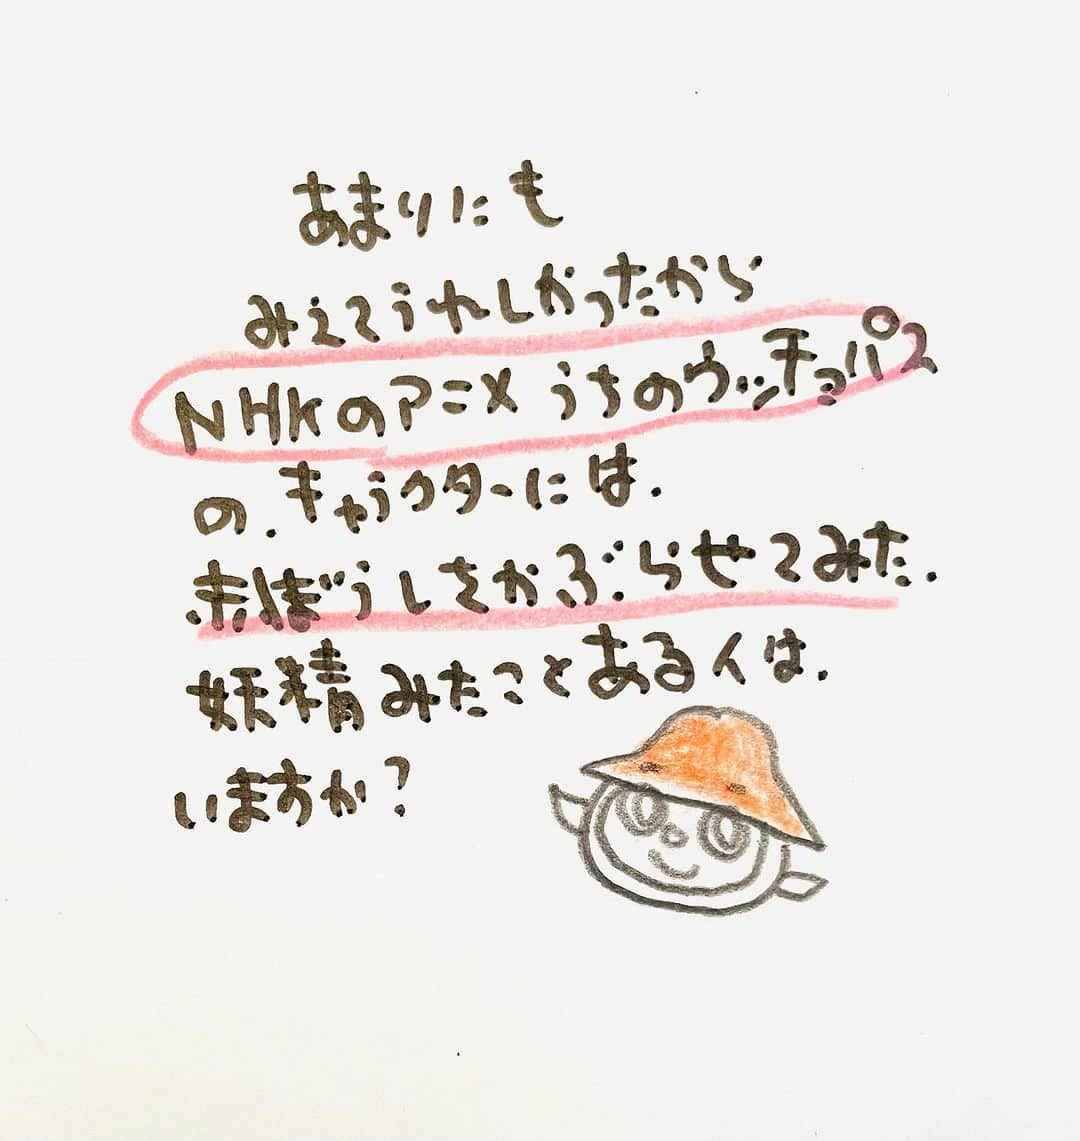 あまりにも
みえてうれしかったから
NHKのアニメ うちのウッチョパス
の.キャラクターには.
赤ぼうしをかぶらせてみた.
妖精みたことある人は.
いますか?